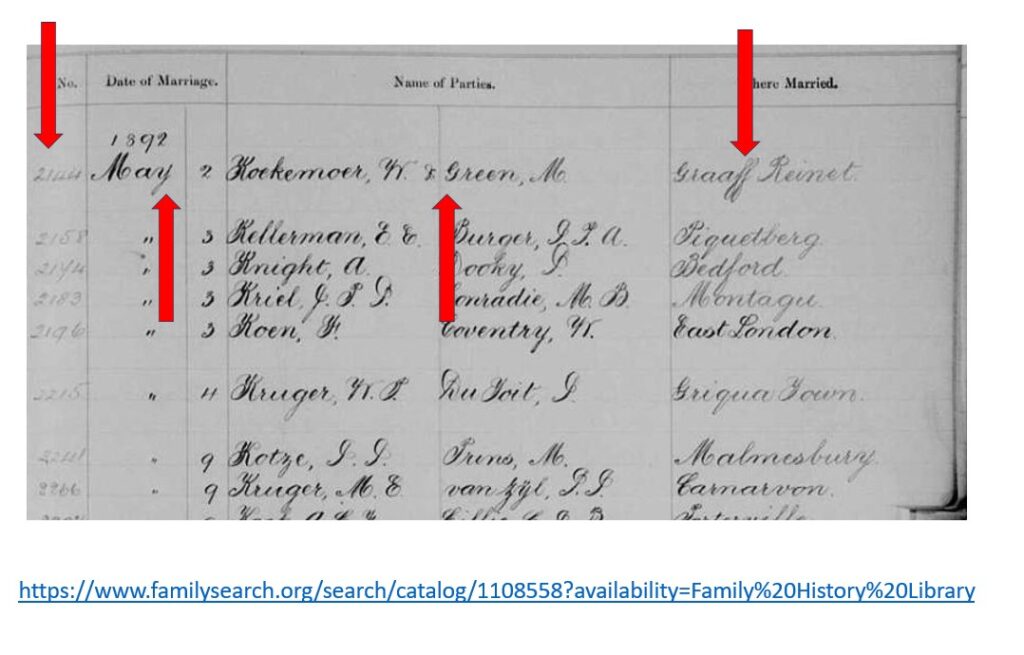 No. Date of Marriage. Name of Parties. here Married.
1892
2144 May 2 Koekemoer, W. & Green, M. Graaff Reinet.
2158 " 3 Kellerman, E. E. Burger, J. P. A. Piquetberg.
2174 " 3 Knight, A. Bedford.
2183 " 3 Kriel, J. P. onradie, M. B. Montagu.
2196 " 3 Koen, F. Coventry, W. East London.
2215 " 4 Kruger, W. P. Du Toit, Griqua Town.
2241 " 9 Kotze, Prins, M. Malmesbury.
2266 " 9 Kruger, M. E. van Zÿl, Carnarvon.
https://www.familysearch.org/search/catalog/1108558?availability=Family%20History%20Library